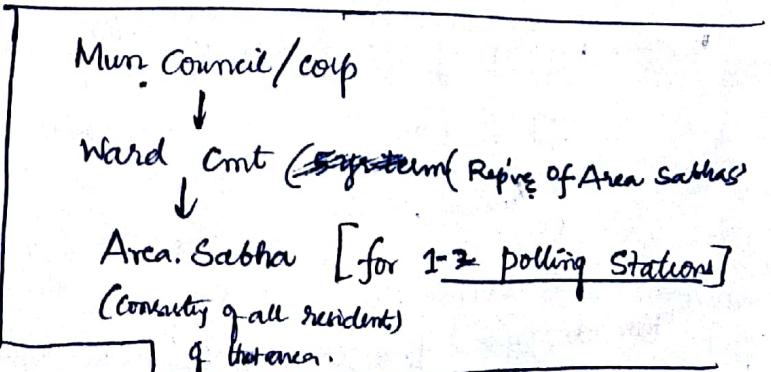 Mun. Council/corp
↓
Ward Cmt ( ( Rep'ves of Area Sabhas
↓
Area. Sabha [for 1-2 polling Stations]
(Consisting of all resident)
of that area.